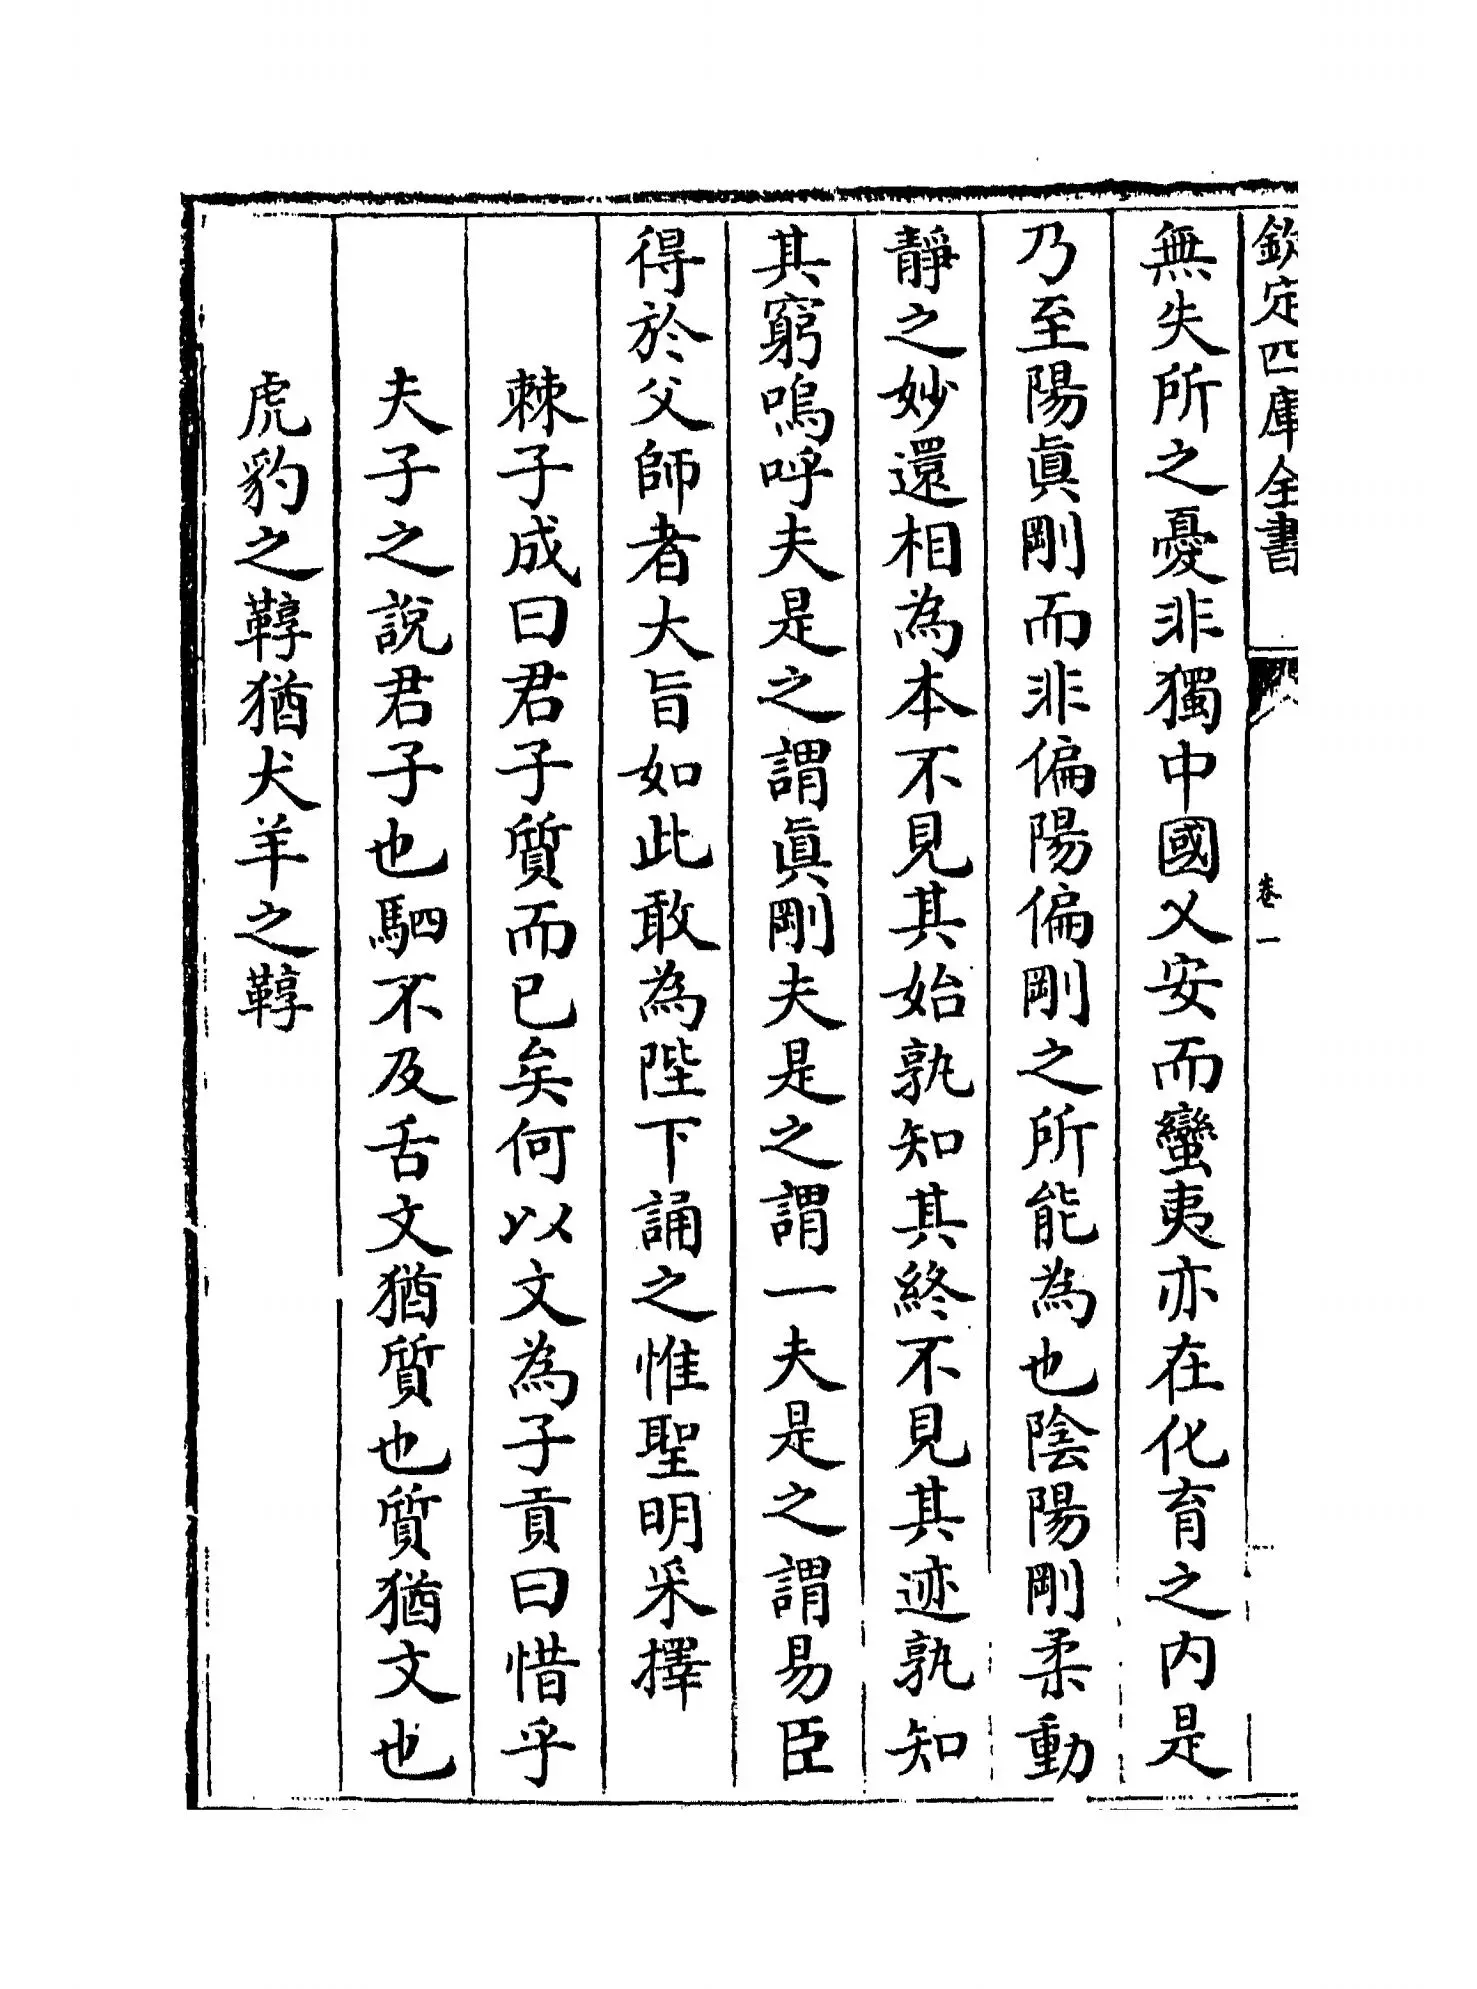 欽定四庫全書
卷一
無失所之憂非獨中國乂安而蠻夷亦在化育之内是
乃至陽眞剛而非偏陽偏剛之所能為也陰陽剛柔動
靜之妙還相為本不見其始孰知其終不見其迹孰知
其窮嗚呼夫是之謂眞剛夫是之謂一夫是之謂易臣
得於父師者大旨如此敢為陛下誦之惟聖明采擇
棘子成曰君子質而已矣何以文為子貢曰惜乎
夫子之說君子也駟不及舌文猶質也質猶文也
虎豹之鞟猶犬羊之鞟